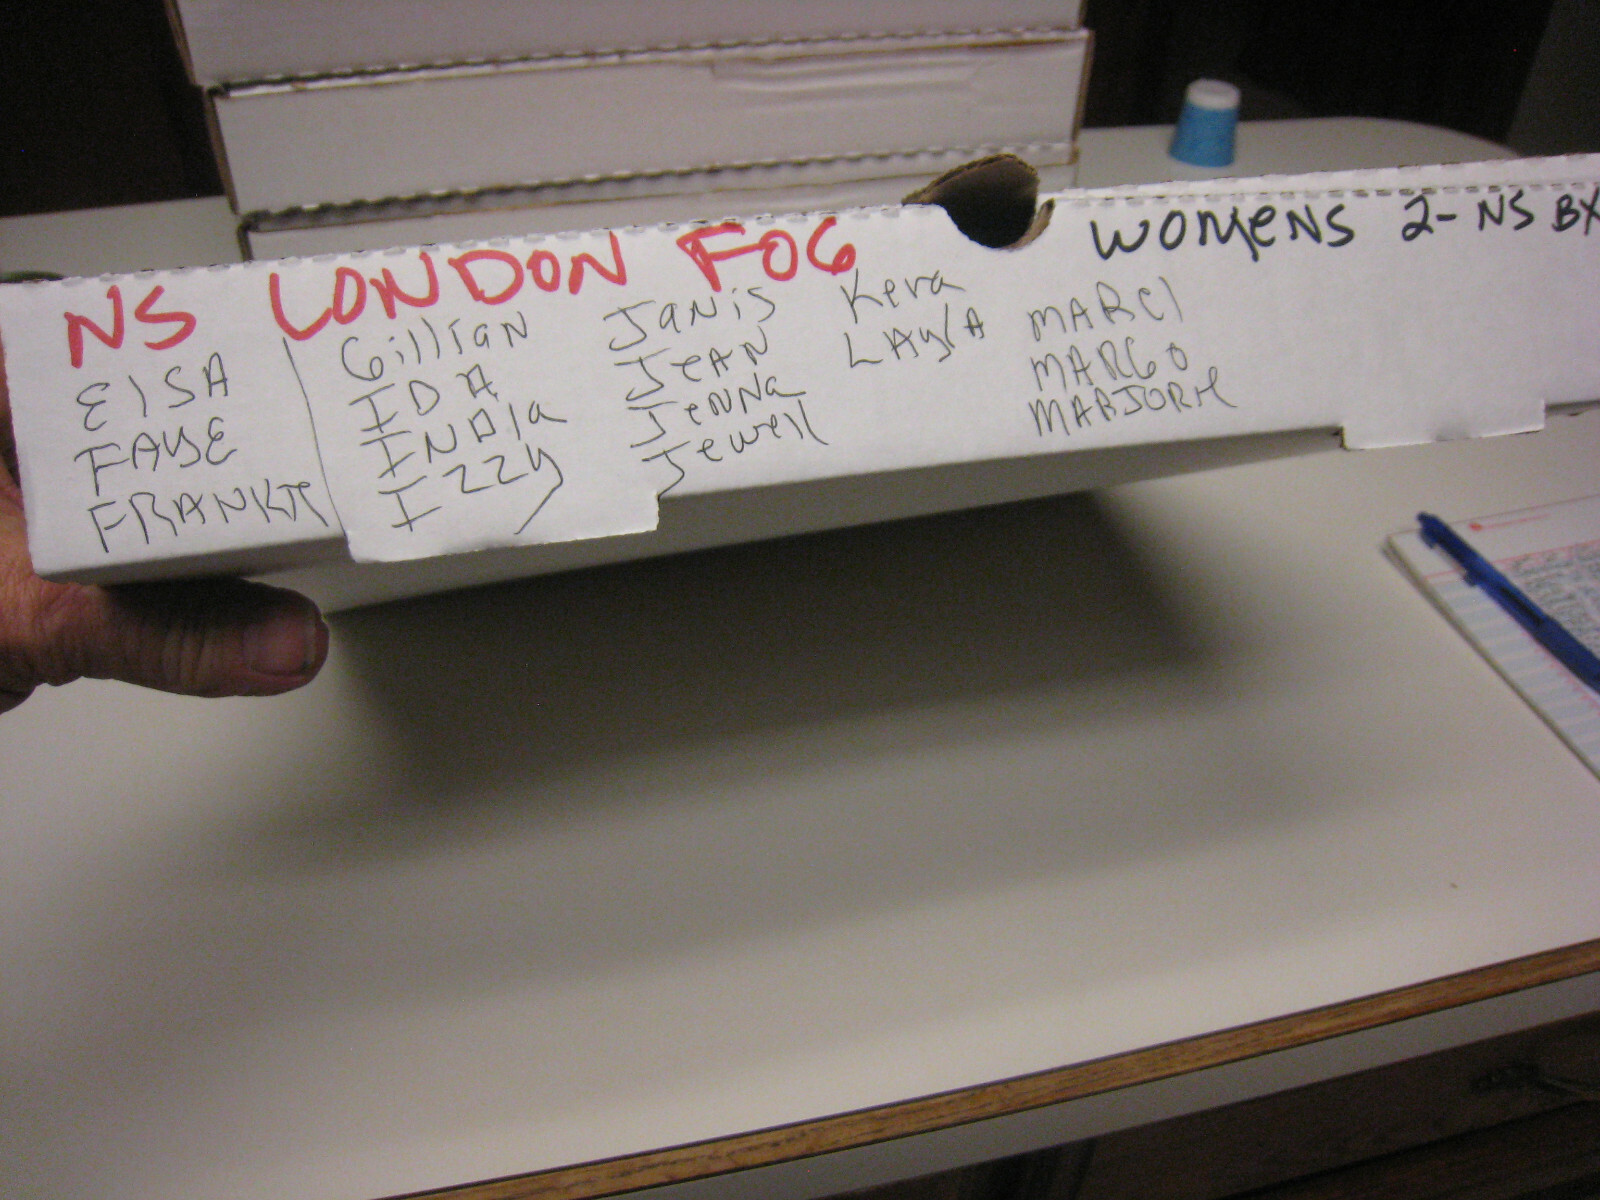 NS LONDON FOG
WOMENS 2- NS BX
ElSA
FAYE
FRANKIE
Gillian
IDA
INDIa
IZZy
JaNis
JeAN
JeNNa
Jewell
Kera
LAYLA
MARCI
MARGO
MARJORIE